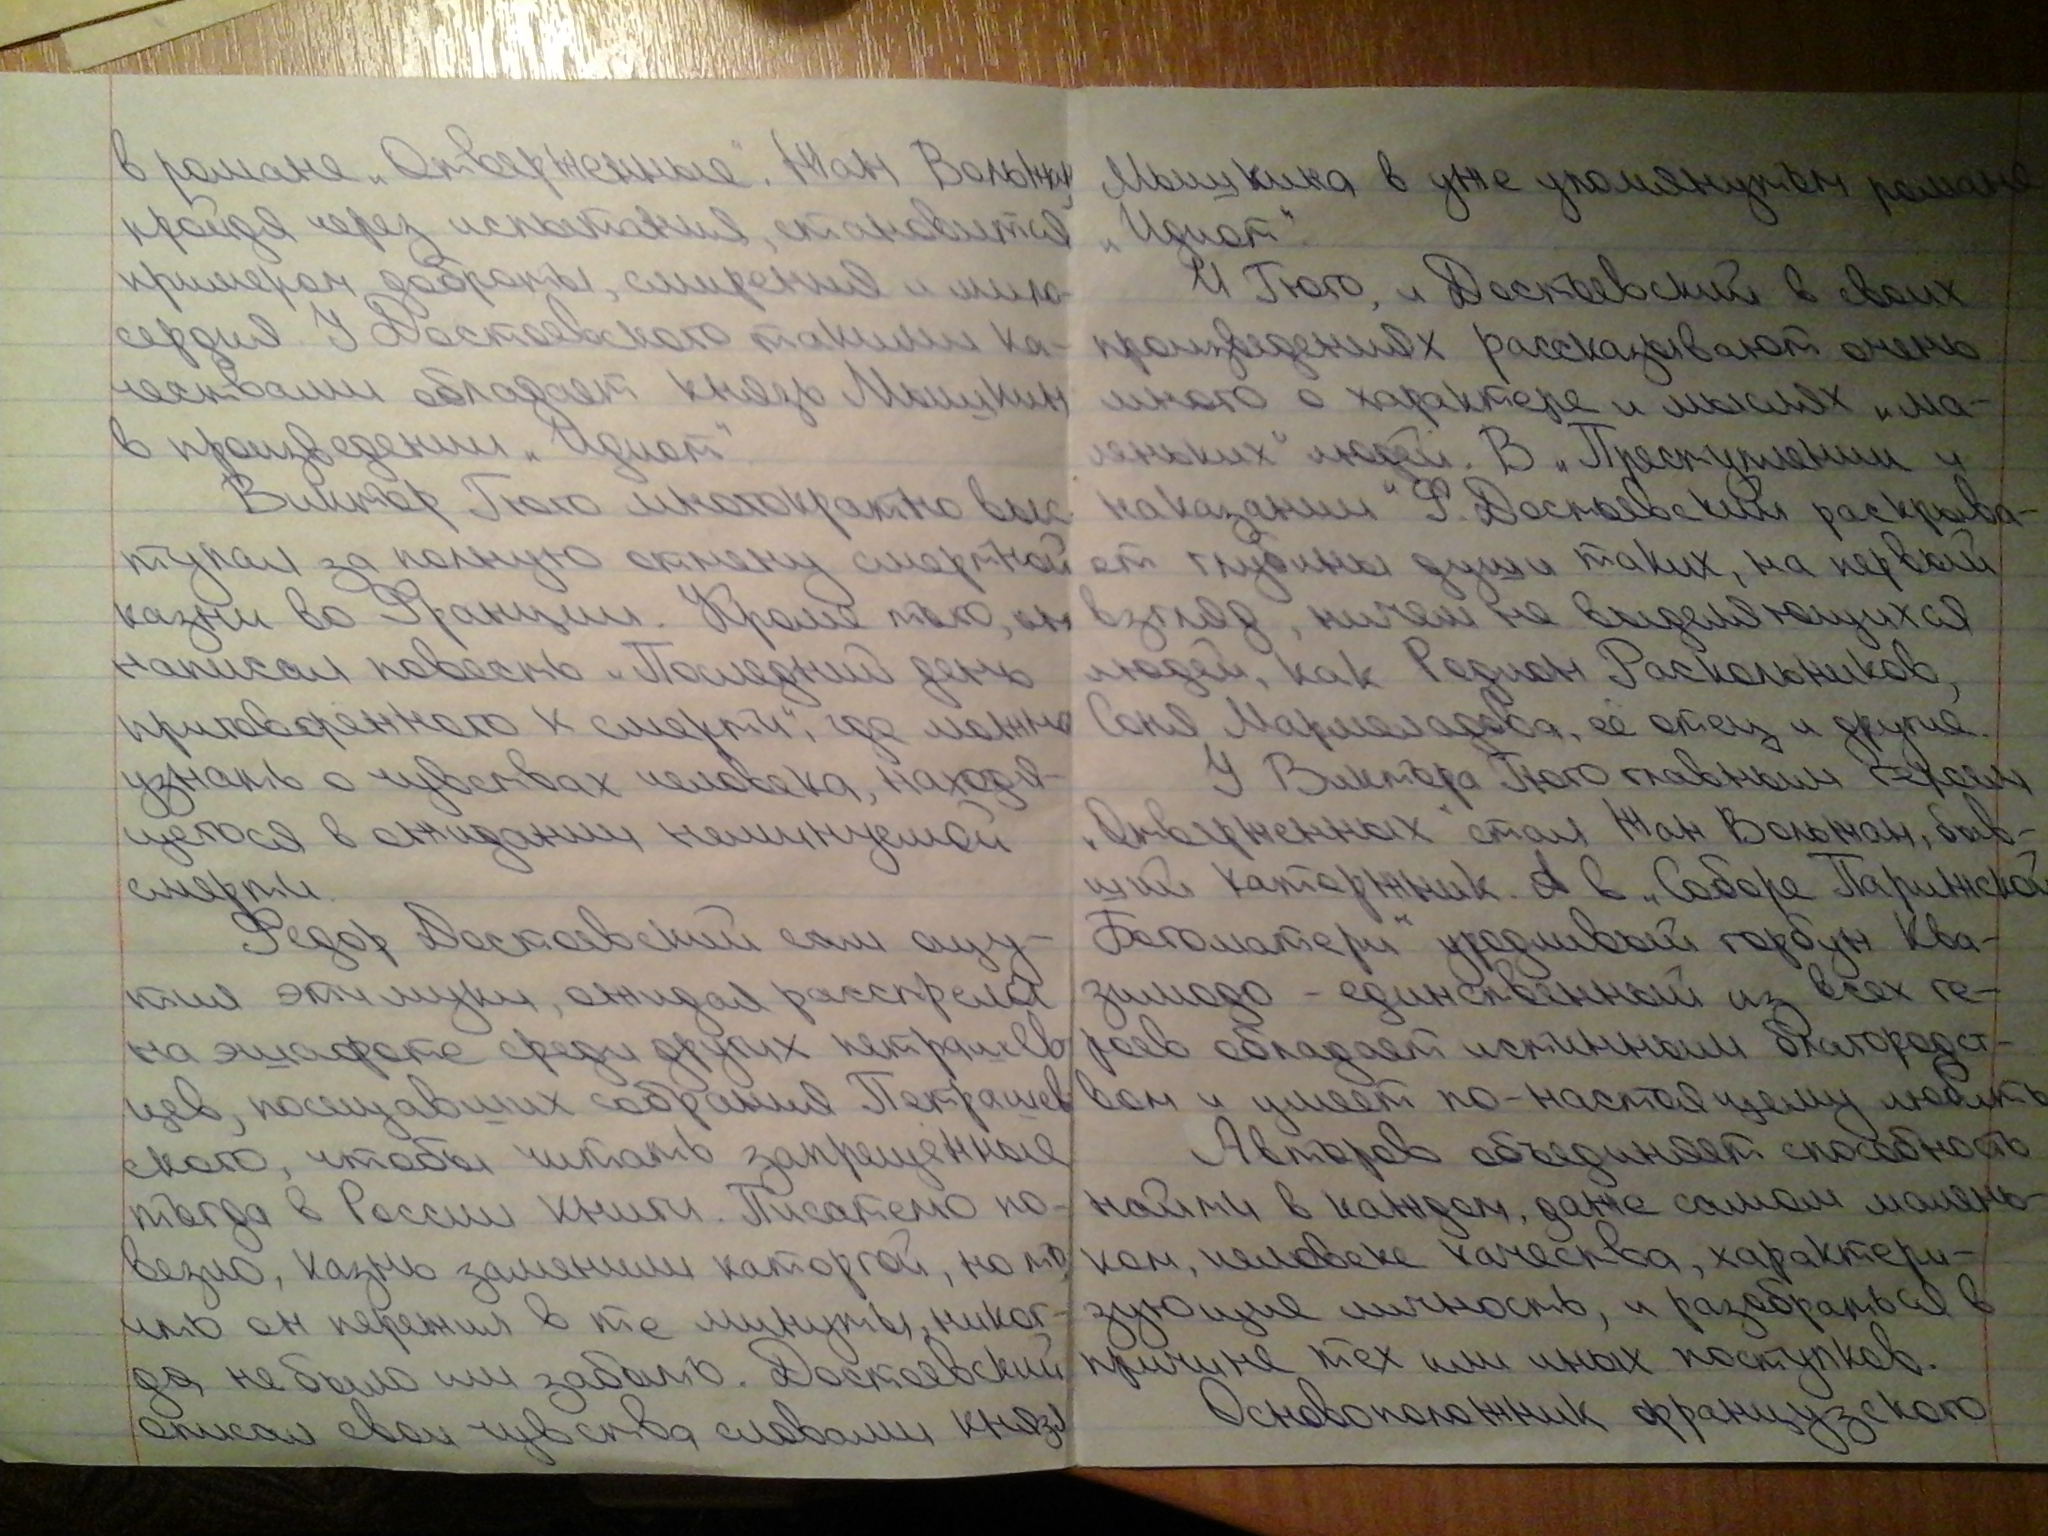 в романе „Отверженные". Жан Вольжан
пройдя через испытания, становится
примером доброты, смирения и мило-
сердия. У Достоевского такими ка-
чествами обладает князь Мышкин
в произведении „Идиот".
Виктор Гюго многократно выс-
тупал за полную отмену смертной
казни во Франции. Кроме того, он
написал повесть „Последний день
приговорённого к смерти", где можно
узнать о чувствах человека, находя-
щегося в ожидании неминуемой
смерти.
Фёдор Достоевский сам ощу-
тил эти муки, ожидая расстрела
на эшафоте среди других петрашев-
цев, посещавших собрания Петрашев-
ского, чтобы читать запрещённые
тогда в России книги. Писателю по-
везло, казнь заменили каторгой, но то,
что он пережил в те минуты, никог-
да не было им забыто. Достоевский
описал свои чувства словами князя
Мышкина в уже упомянутом романе
„Идиот".
И Гюго, и Достоевский в своих
произведениях рассказывают очень
много о характере и мыслях „ма-
леньких" людей. В „Преступлении и
наказании" Ф. Достоевский раскрыва-
ет глубины души таких, на первый
взгляд, ничем не выделяющихся
людей, как Родион Раскольников,
Соня Мармеладова, её отец и другие.
У Виктора Гюго главным героем
„Отверженных" стал Жан Вольжан, быв-
ший каторжник. А в „Соборе Парижской
Богоматери" уродливый горбун Ква-
зимодо - единственный из всех ге-
роев обладает истинным благородст-
вом и умеет по-настоящему любить.
Авторов объединяет способность
найти в каждом, даже самом малень-
ком, человеке качества, характери-
зующие личность, и разобраться в
причине тех или иных поступков.
Основоположник французского